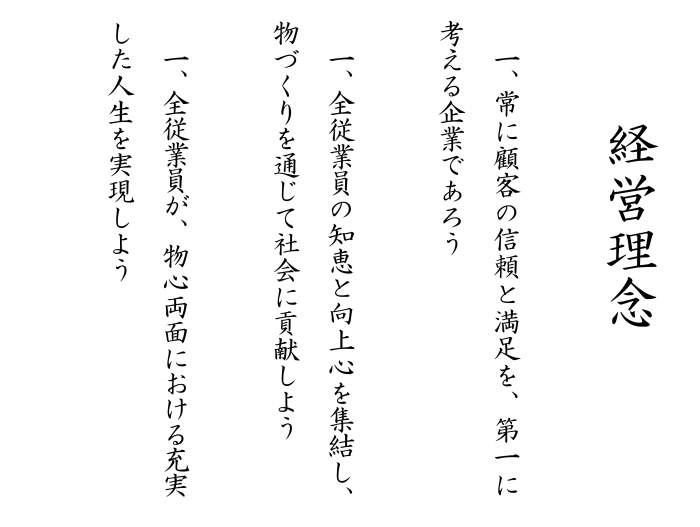 経営理念
一、常に顧客の信頼と満足を、第一に
考える企業であろう
一、全従業員の知恵と向上心を集結し、
物づくりを通じて社会に貢献しよう
一、全従業員が、物心両面における充実
した人生を実現しよう